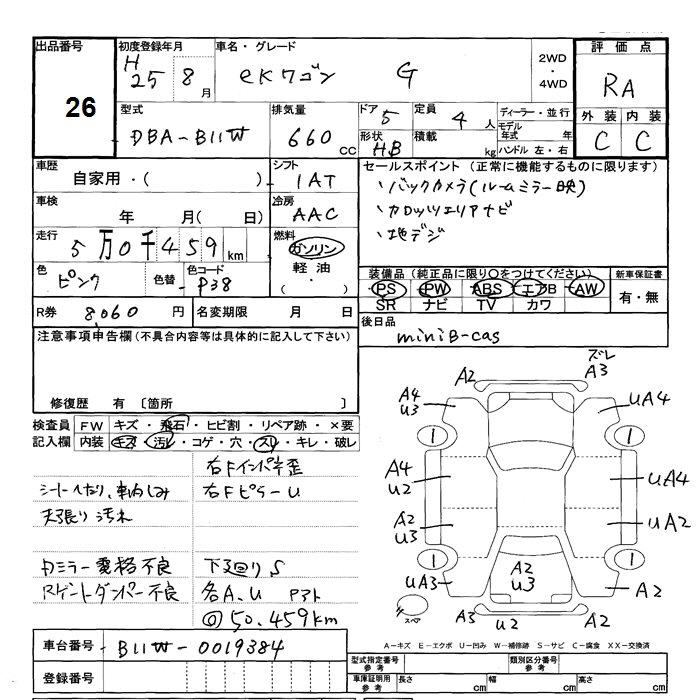 出品番号 初度登録年月 車名・グレード 2WD・4WD 評価点
26 H 25 8月 eKワゴン G RA
型式 排気量 ドア 5 定員 4人 ディーラー・並行 外装 内装
DBA-B11W 660cc 形状 HB 積載 kg モデル年式 年 ハンドル 左・右 C C
車歴 自家用・( ) シフト IAT セールスポイント(正常に機能するものに限ります)
、バックカメラ(ルームミラー映)
車検 年 月( 日) 冷房 AAC
、カロッツエリアナビ
走行 5万0千459km 燃料 ガソリン 軽油・
、地デジ
色 ピンク 色替 色コード P38
装備品(純正品に限り○をつけてください) 新車保証書
PS PW ABS エアB AW 有・無
SR ナビ TV カワ
R券 8,060円 名変期限 月 日
後日品 miniB-cas
注意事項申告欄(不具合内容等は具体的に記入して下さい)
修復歴 有〔箇所 〕
検査員記入欄 FW キズ・飛石・ヒビ割・リペア跡・×要
内装 キズ・汚レ・コゲ・穴・スレ・キレ・破レ
右Fインパネ歪
シートへたり、車内しみ 右Fピラーu
天張り汚れ
ミラー 格不良 下廻りS
Rゲートダンパー不良 各A、u P3ト
@50,459km
A2 ズレ A3
A4 u3 uA4
1 1
A4 u2 uA4
A2 u3 uA2
1 1
A2 u3
uA3 A2
スペア u2 A2
A-キズ E-エクボ U-凹み W-補修跡 S-サビ C-腐食 XX-交換済
車台番号 B11W-0019384
登録番号
型式指定番号 参考 類別区分番号 参考
車庫証明用 参考 長さ cm 幅 cm 高さ cm